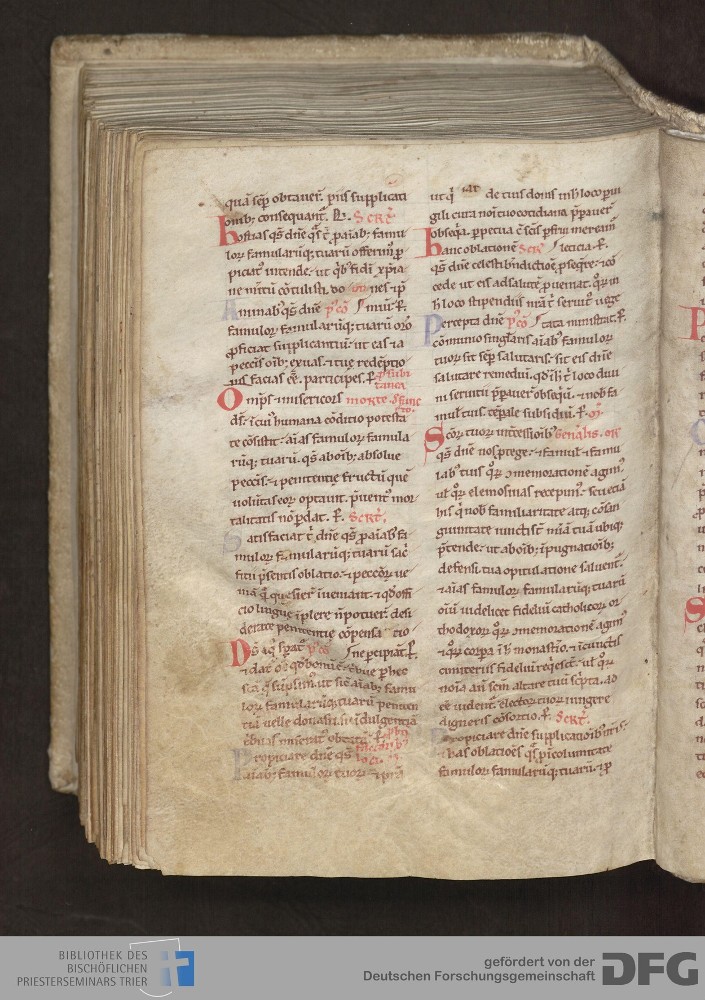 quã sep̃ obtauer̃. pijs supplicati
onib; consequant᷑. P. Secr̃
hostias qs̃ dñe q̃s t̃ ꝓ aĩab; famu
loꝝ famularũq; tuarũ offerim᷒ ꝓ
piciat᷒ intende. ut qib᷒ fidei xp̃ia
ne meritũ cõtulisti. do
nes ⁊ p̃
Animab᷒ qs̃ dñe p᷒ cõ miũ. P.
famuloꝝ famularũq; tuarũ orõ
ꝓficiat supplicantiũ. ut eas ⁊ a
peccis oĩb; exuas. ⁊ tue redẽptio
nis facias eẽ participes. P.
Omp̃s ⁊ misericors morte
ds̃. ĩ cui᷒ humana cõditio potesta
te cõsistit. aĩas famuloꝝ famula
rũq; tuarũ. qs̃ ab oĩb; absolue
peccis. ⁊ penitentie fructũ quẽ
uolũtas eoꝝ optauit. p̃uent᷒ mor
talitatis nõ ꝑdat. P. Secr̃.
Satisfaciat t̃ dñe qs̃ ꝓ aĩab᷒ fa
muloꝝ famularũq; tuarũ sac̃
ficii p̃sentis oblatio. ⁊ peccoꝝ ue
niã quã quesier̃ inueniant. ⁊ qd̃ offi
cio lingue ĩplere ñ potuer̃. desi
derate penitentie cõpensa tio
Ds̃ a quo spirat᷒ p᷒ cõ ne ꝑcipiat. P.
famu
loꝝ famularũq; tuarũ peniten
tiã uelle donasti. indulgentiã
tribuas miserat᷒
Propiciare dñe qs̃
aĩab; famuloꝝ tuoꝝ
ut q̃ de tuis donis in h̃ loco ꝓ ui
gili cura nõi tuo cotidiana p̃parauer̃
obseq̃a. ꝑpetua
hanc oblationẽ Secr̃ leticia. P.
qs̃ dñe celesti bñdictiõe ꝓseq̃re. ⁊ cõ
cede ut eis ad salutẽ ꝓueniat. q̃ꝝ in
h̃ loco stipendiis iugit
Percepta dñe p᷒ cõ tata ministrat. P.
cõmunio singularis aĩab᷒ famuloꝝ
tuoꝝ sit sep̃ salutaris. sit eis dñe
salutare remediũ. qd̃ ĩ h̃ t̃ loco diui
ni seruitii p̃parauer̃ obseq̃ũ. ⁊ nob̃ fa
mulis tuis tẽpale subsidiũ. P.
Scõꝝ tuoꝝ intcessioĩb᷒ gen̄alis. or̃
qs̃ dñe nos ꝓtege. ⁊ famulis ⁊ famu
lab᷒ tuis q̃ꝝ ꝯmemorationẽ agim᷒
ul̃ q̃ꝝ elemosinas recepim᷒. seu etiã
his q̃ nob̃ familiaritate atq; cõsan
guinitate iuncti st̃ miã tuã ubiq;
p̃tende. ut ab oĩb; ĩpugnatioĩb;
defensi tua opitulatione saluent᷑.
⁊ aĩas famuloꝝ famularũq; tuarũ
oĩũ uidelicet fideliũ catholicoꝝ or
thodoxoꝝ q̃ꝝ ꝯmemorationẽ agim᷒
⁊ q̃ꝝ corpa ĩ h̃ monastio. ⁊ ĩ cunctis
cimiteriis fideliũ reqescũt. ul̃ q̃ꝝ
noĩa an̄ scm̃ altare tuũ sc̃pta. ad
eẽ uident᷑. electoꝝ tuoꝝ iungere
digneris cõsortio. P. Secr̃.
Propiciare dñe supplicatioĩb᷒
⁊ has oblatões
famuloꝝ famularũq; tuarũ. ⁊ ꝓ
BIBLIOTHEK DES
BISCHÖFLICHEN
PRIESTERSEMINARS TRIER
gefördert von der
Deutschen Forschungsgemeinschaft
DFG